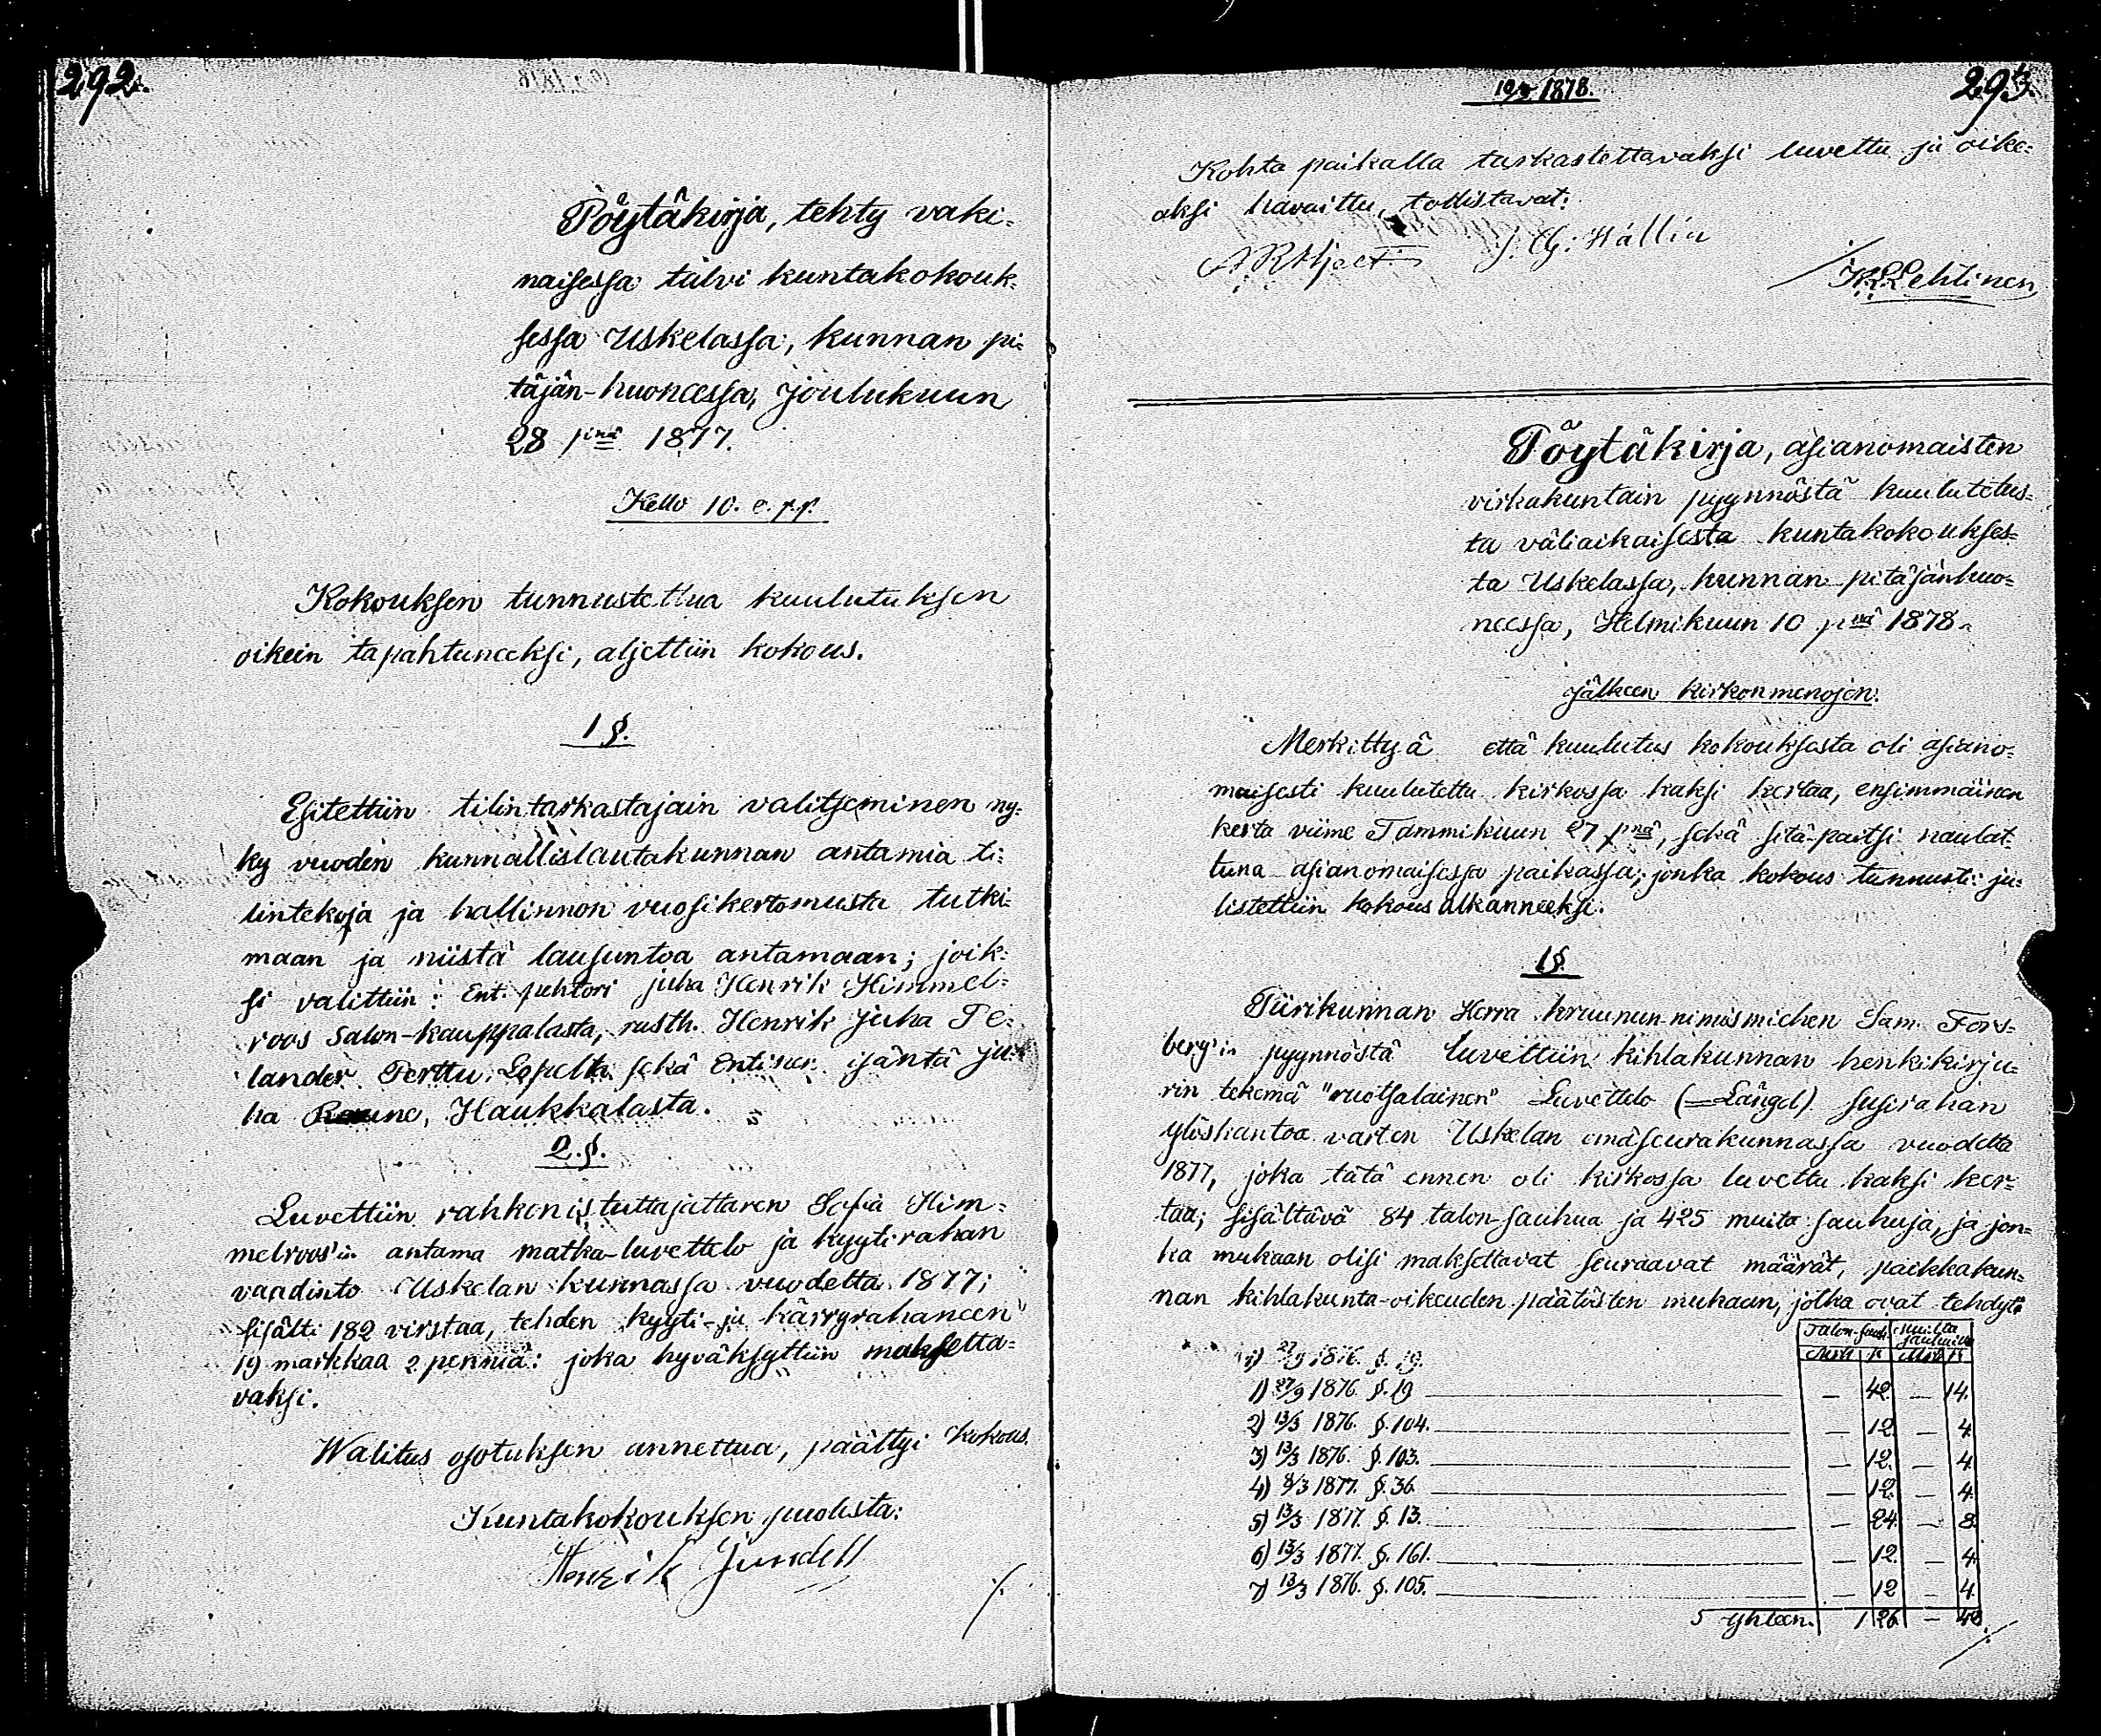 292.
Pöytäkirja, tehty vaki-
naisessa talvi kuntakokouk-
sessa Uskelassa, kunnan pi-
täjän-huoneessa, Joulukuun
28 pnä 1877.
Kello 10. e. p.p.
Kokouksen tunnustettua kuulutuksen
oikein tapahtuneeksi, aljettiin kokous.
1 §.
Esitettiin tilintarkastajain valitseminen ny-
ky vuoden kunnallislautakunnan antamia ti-
lintekoja ja hallinnon vuosikertomusta tutki-
maan ja niistä lausuntoa antamaan; joik-
si valittiin: Ent. puhtori Juha Henrik Himmel-
roos Salon-kauppalasta, rusth. Henrik Juha Te-
lander Perttu, Lopelta sekä Entinen isäntä Ju-
ha Raune, Haukkalasta.
2. §.
Luvettiin rahkonistuttajattaren Sofia Him-
melroos'in antama matka-luvettelo ja kyytirahan
vaadinto Uskelan kunnassa vuodelta 1877;
sisälti 182 virstaa, tehden kyyti- ja kärryrahaneen
19 markkaa 2 penniä: joka hyväksyttiin maksetta-
vaksi.
Walitus osotuksen annettua, päättyi kokous.
Kuntakokouksen puolesta:
Henrik Jundell
10/3 1878.
293.
Kohta paikalla tarkastettavaksi luvettu ja oike-
aksi havaittu, todistavat:
J. G. Wallin
K L Lehtinen
Pöytäkirja, asianomaisten
virkakuntain pyynnöstä kuulutetus-
ta väliaikaisesta kuntakokoukses-
ta Uskelassa, kunnan pitäjänhuo-
neessa, Helmikuun 10 pnä 1878.
jälkeen kirkonmenojen.
Merkittyä että kuulutus kokouksesta oli asiano-
maisesti kuulutettu kirkossa kaksi kertaa, ensimmäinen
kerta viime Tammikuun 27 pnä, sekä sitä-paitsi naulat-
tuna asianomaisessa paikassa; jonka kokous tunnusti: ju-
listettiin kokous alkanneeksi.
1 §.
Piirikunnan Herra kruunun-nimismiehen Sam. Fors-
berg'in pyynnöstä luvettiin kihlakunnan henkikirju-
rin tekemä "ruotsalainen" Luvettelo (=Längd) susirahan
ylöskantoa varten Uskelan emäseurakunnassa vuodelta
1877, joka tätä ennen oli kirkossa luvettu kaksi ker-
taa; sisältävä 84 talon-sauhua ja 425 muita sauhuja, ja jon-
ka mukaan olisi maksettavat seuraavat määrät, paikkakun-
nan kihlakunta-oikeuden päätösten mukaan, jotka ovat tehdyt:
Talon-sauh. Muilta sauhuilta
Mrk p. Mrk p.
1) 27/9 1876. §. 19.
1) 27/9 1876. §. 19 — 42. — 14.
2) 13/3 1876. §. 104. — 12. — 4.
3) 13/3 1876. §. 103. — 12. — 4.
4) 8/3 1877. §. 36 — 12. — 4.
5) 13/3 1877. §. 13. — 24. — 8.
6) 13/3 1877. §. 161. — 12. — 4.
7) 13/3 1876. §. 105. — 12 — 4.
Yhteen. 1 26 — 42.